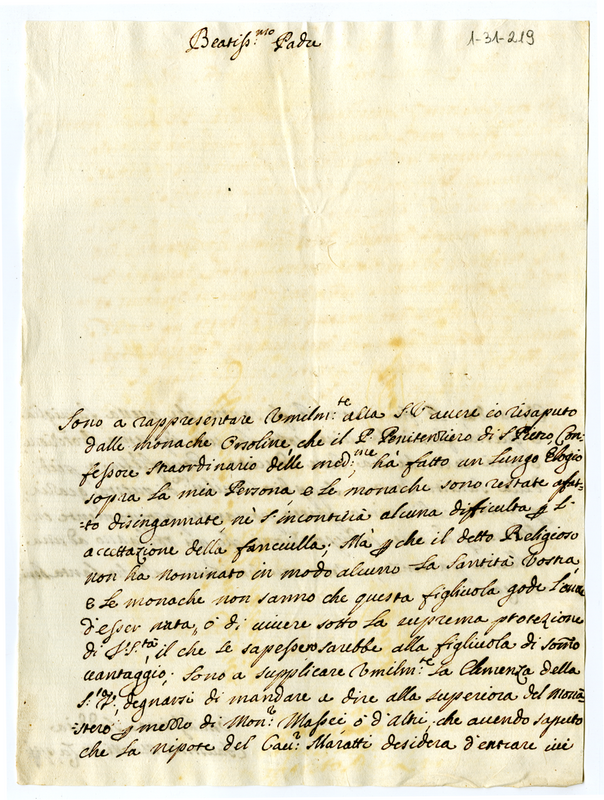 Beatiss:mo Padre
1-31-219
Sono a rappresentare Vmilm:te alla S.V. auere io risaputo
dalle monache Orsoline, che il P. Penitenziero di S. Pietro, Con-
fessore straordinario delle med:me hà fatto un Lungo Elogio
sopra La mia Persona, e Le monache sono restate affat-
-to disingannate, nè s'incontrerà alcuna difficultà p L'
accettazione della fanciulla; Mà p che il detto Religioso
non ha nominato in modo alcuno La Santità Vostra,
e Le monache non sanno che questa figliuola gode L'onore
d'esser nata, ò di uiuere sotto La suprema protezione
di V. S.tà, il che se sapessero sarebbe alla figliuola di sommo
uantaggio; Sono a supplicare Vmilm:te La Clemenza della
S. V. degnarsi di mandare a dire alla superiora del Mona-
-stero p mezzo di Mon:r Massei, ò d'Altri, che auendo saputo
che La nipote del Cau:r Maratti desidera d'entrare iui